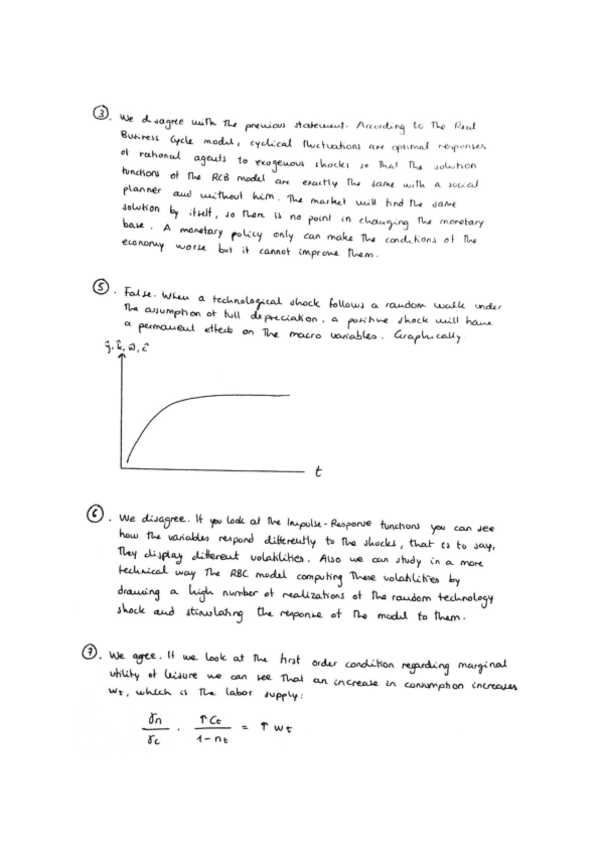 ③. We disagree with the previous statement. According to the Real
Business Cycle model, cyclical fluctuations are optimal responses
of rational agents to exogenous shocks so that the solution
functions of the RCB model are exactly the same with a social
planner and without him. The market will find the same
solution by itself, so there is no point in changing the monetary
base. A monetary policy only can make the conditions of the
economy worse but it cannot improve them.
⑤. False. When a technological shock follows a random walk under
the assumption of full depreciation, a positive shock will have
a permanent effect on the macro variables. Graphically:
ŷ, k̂, ŵ, ĉ
t
⑥. We disagree. If you look at the Impulse-Response functions you can see
how the variables respond differently to the shocks, that is to say,
they display different volatilities. Also we can study in a more
technical way the RBC model computing these volatilities by
drawing a high number of realizations of the random technology
shock and stimulating the response of the model to them.
⑦. We agree. If we look at the first order condition regarding marginal
utility of leisure we can see that an increase in consumption increases
Wt, which is the labor supply:
γn/γc · ↑Ct/1-nt = ↑Wt